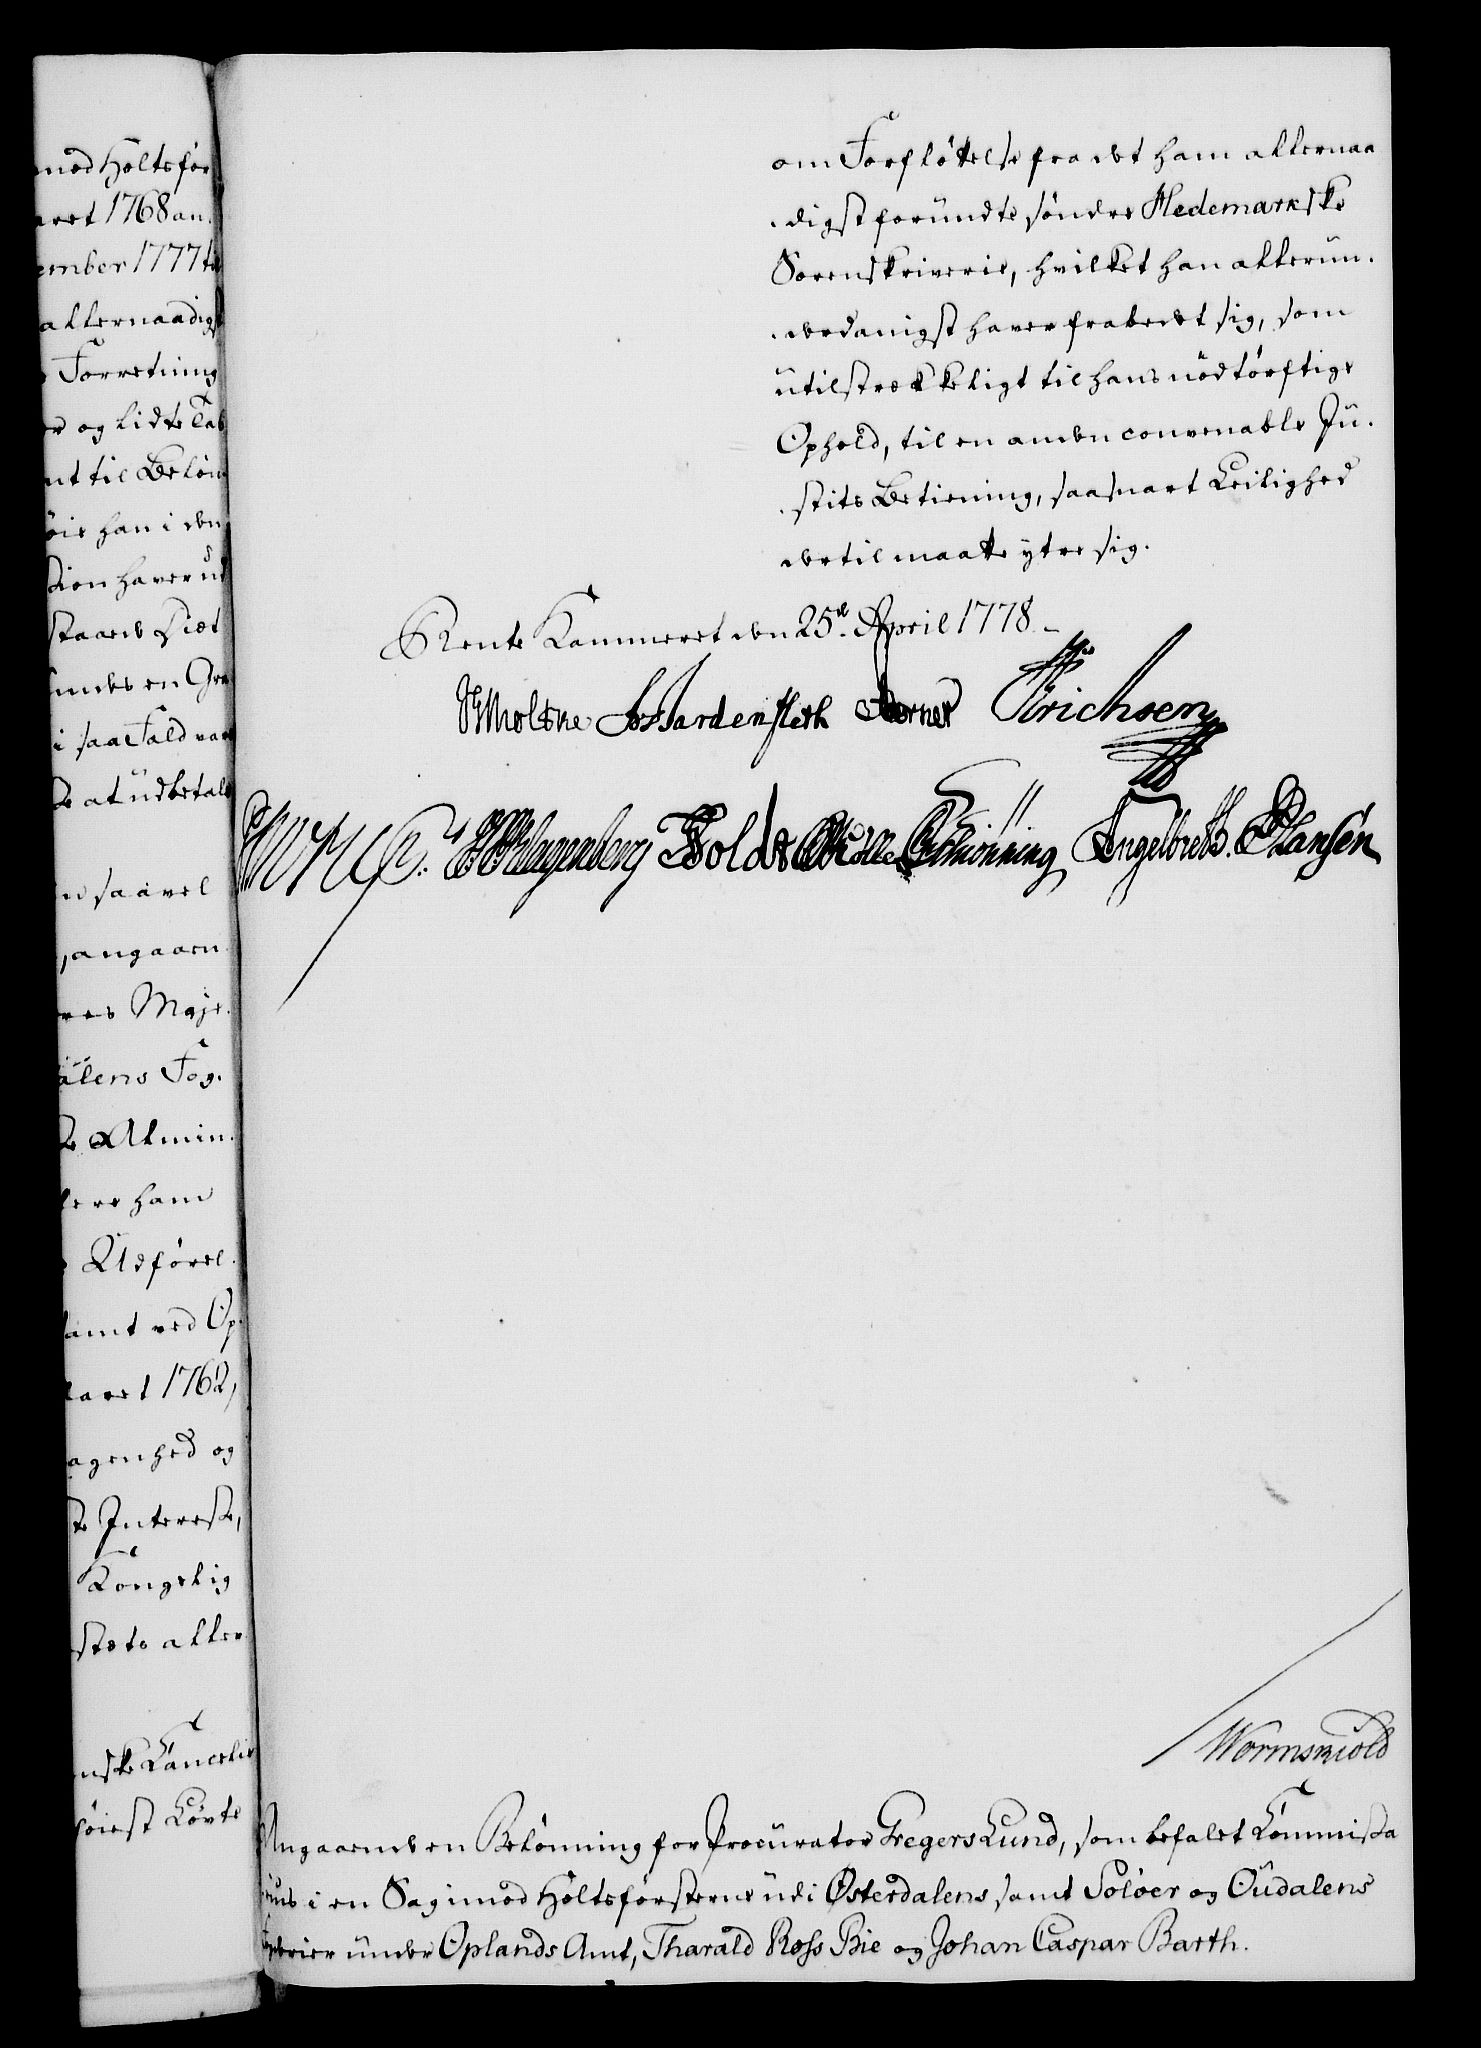 mod Holtsför
aret 1768 an.
ember 1777 til
allernaadigst
Forretning
er og lidte Tab
nt til Belön
öie han i den
sion haver ud
staaende Diæt
i saa Fald vær
at üdbetale
saavel
angaaen
res Maje.
alens Fog.
Almin.
lere ham
Udförel.
samt ved Op.
aaret 1762,
agenhed og
te Interesse,
Kongelig
stets aller
nske Cancelie
höiest Lövte
om Forflöttelse fra det ham allernaa
digst foründte söndre Hedemarkske
Sorenskriverie, hvilket han allerün.
derdanigst haver frabedet sig, som
ütilstrækkeligt til hans nödtörftige
Ophold, til en anden convenable Jü.
stits Betiening, saasnart Leilighed
dertil maatte yttre sig.
Rente Kammeret den 25de April 1778.
JEMoltke Hardenfleth Berner Erichsen
Klagenberg Holdt Schiönning Engelbreth. Hansen
Wormskiold
Angaaende en Belönning for Procürator Gregers Lund, som befalet Commissa
rius i en Sag imod Holtsförsterne üdi Østerdalens samt Solöer og Oüdalens
Fogderier ünder Oplands Amt, Tharald Ross Bie og Johan Caspar Barth.